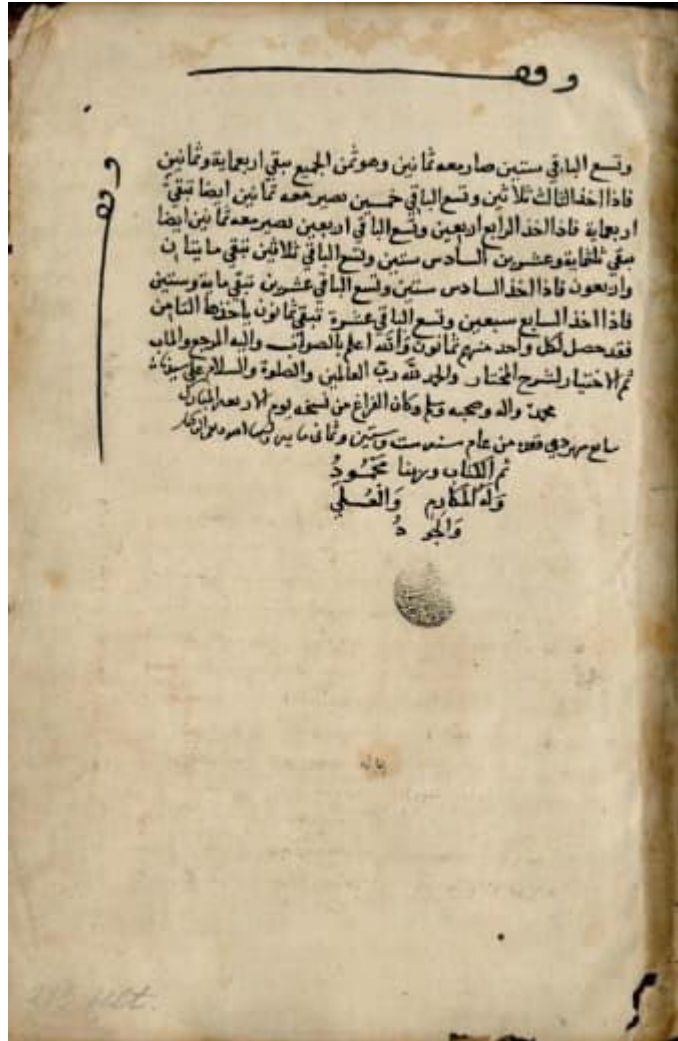 وقف
وقف
وتسع الباقي ستين صار معه ثمانين وهو ثمن الجميع يبقي اربعماية وثمانين
فاذا اخذ الثالث ثلاثين وتسع الباقي خمسين يصير معه ثمانين ايضا تبقي
اربعماية فاذا اخذ الرابع اربعين وتسع الباقي اربعين يصير معه ثمانين ايضا
يبقي ثلثماية وعشرين السادس ستين وتسع الباقي ثلاثين تبقي مايتان
واربعون فاذا اخذ السادس ستين وتسع الباقي عشرين تبقي ماية وستين
فاذا اخذ السابع سبعين وتسع الباقي عشرة تبقي ثمانون ياخذها الثامن
فقد حصل لكل واحد منهم ثمانون والله اعلم بالصواب واليه المرجع والماب
تم الاختيار لشرح المختار والحمد لله رب العالمين والصلوة والسلام علي سيدنا
محمد واله وصحبه وسلم وكان الفراغ من نسخه يوم الاربعا المبارك
سابع شهر من عام سنه ست وستين وثماني مايه
تم الكتاب وربنا محمود
وله المكارم والعلي
والجود